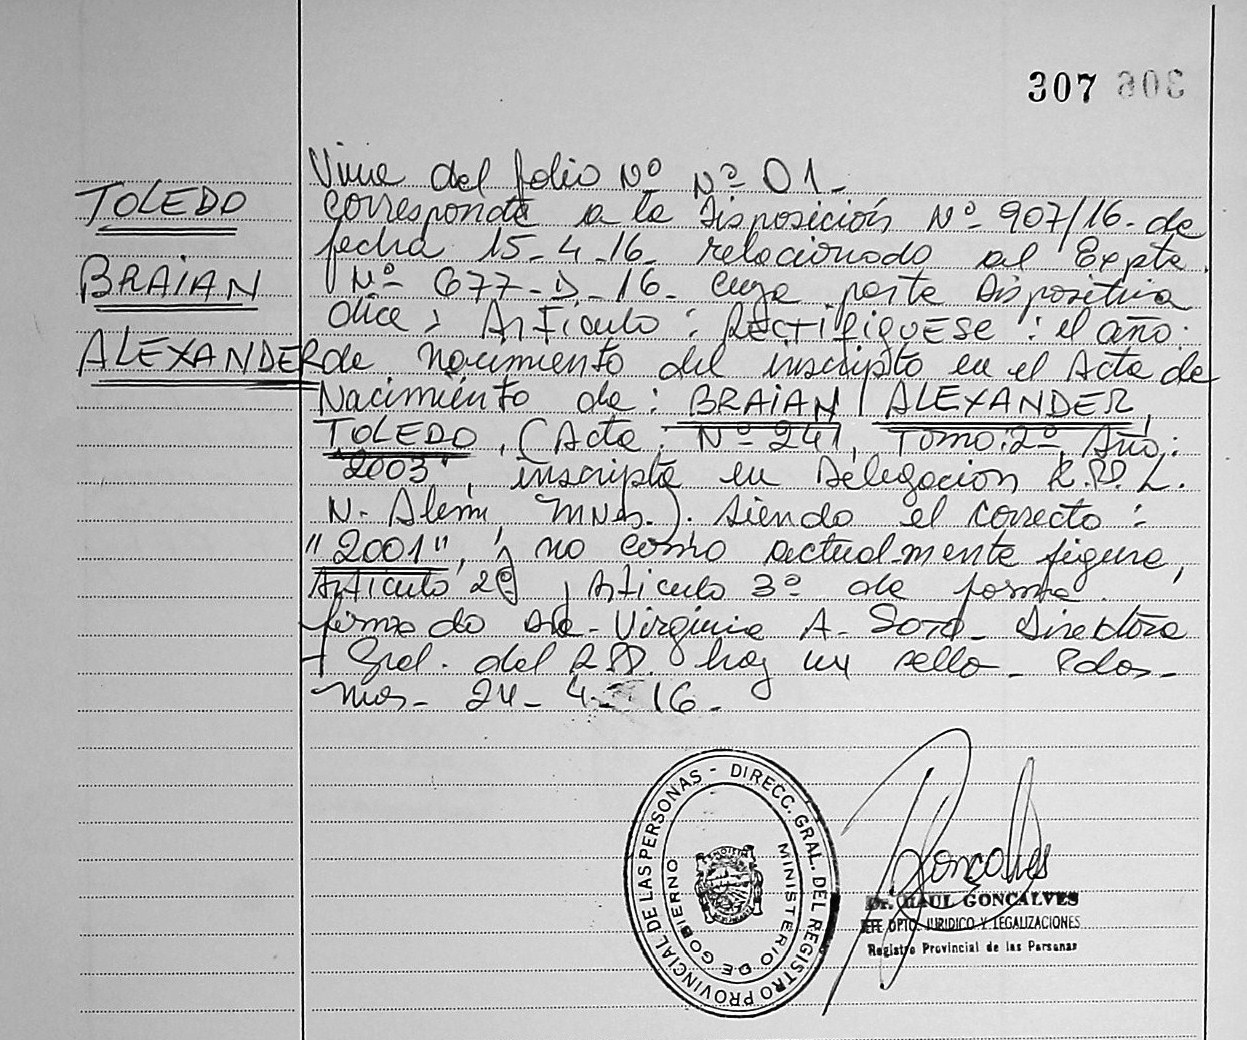 307 308
TOLEDO
BRAIAN
ALEXANDER
Viene del folio Nº Nº 01_
Corresponde a la Disposición Nº 907/16- de
fecha 15_4_16_ relacionado al Expte.
Nº 677_D_16_ cuya parte Dispositiva
dice: Artículo: RECTIFIQUESE: el año:
de nacimiento del inscripto en el Acta de
Nacimiento de: BRAIAN ALEXANDER
TOLEDO, (Acta Nº 241, Tomo: 2º, Año:
"2003", inscripta en Delegación R.P. L.
N. Alem, Mnes.). siendo el correcto:
"2001", y no como actualmente figura,
Artículo 2º, Artículo 3º de forma.
firmado Virginia A. Soto_ Directora
Gral. del RPP. hay un sello_ Pdas_
Mnes_ 24_4_16_
DIRECC. GRAL. DEL REGISTRO PROVINCIAL DE LAS PERSONAS -
MINISTERIO DE GOBIERNO
Goncalves
Dr. RAUL GONCALVES
JEFE DPTO. JURIDICO Y LEGALIZACIONES
Registro Provincial de las Personas